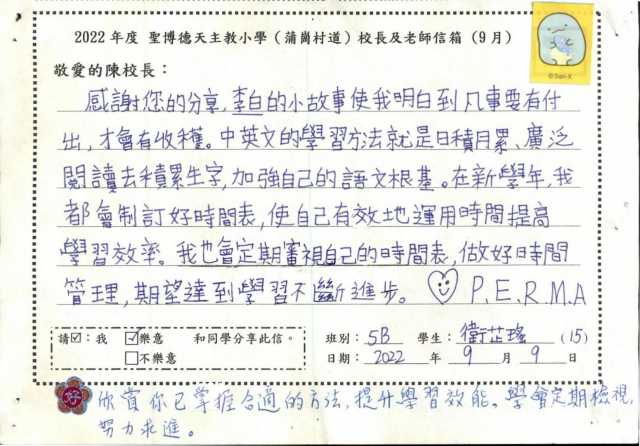 2022 年度 聖博德天主教小學（蒲崗村道）校長及老師信箱（9月）
敬愛的陳校長：
感謝您的分享，李白的小故事使我明白到凡事要有付
出，才會有收穫。中英文的學習方法就是日積月累、廣泛
閱讀去積累生字，加強自己的語文根基。在新學年，我
都會制訂好時間表，使自己有效地運用時間提高
學習效率。我也會定期審視自己的時間表，做好時間
管理，期望達到學習不斷進步。 P.E.R.M.A
請☑：我 ☑樂意 和同學分享此信。 班別：5B 學生：衞芷瑤 (15)
□不樂意 日期：2022 年 9 月 9 日
好 欣賞你已掌握合適的方法，提升學習效能。學會定期檢視，
努力求進。